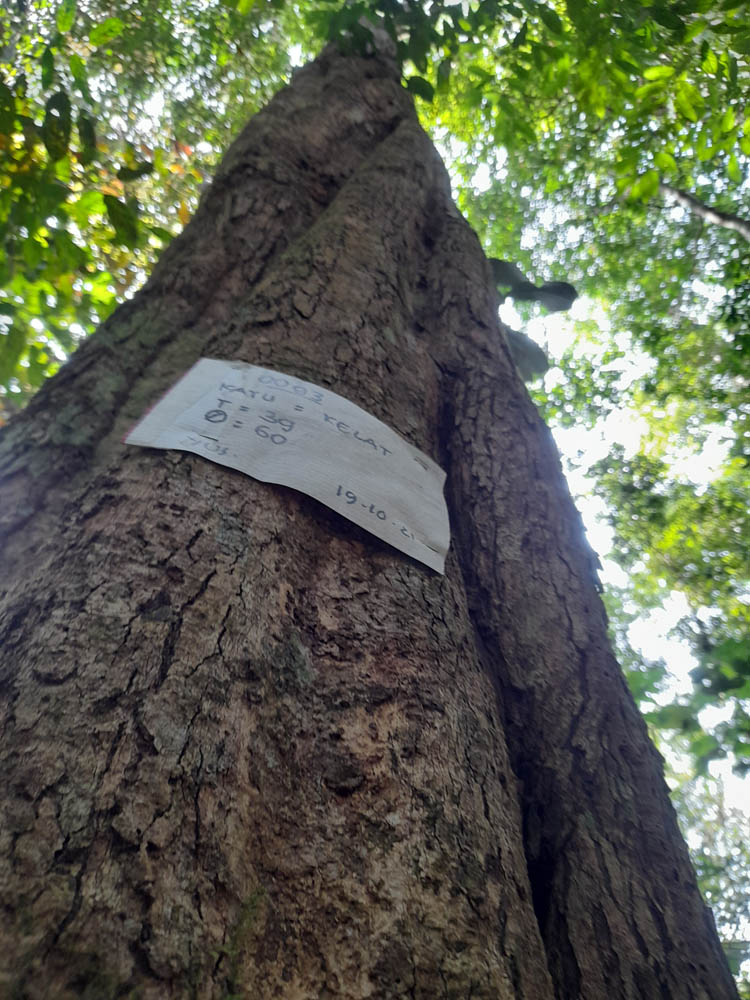 0093
KAYU = KELAT
T = 39
Ø = 60
19-10-21